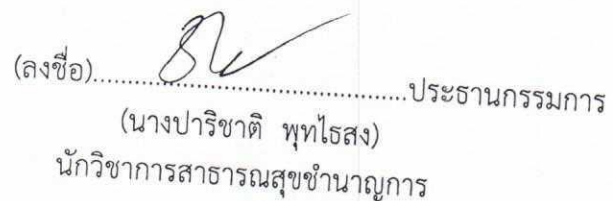 (ลงชื่อ)......................................ประธานกรรมการ
(นางปาริชาติ พุทไธสง)
นักวิชาการสาธารณสุขชำนาญการ